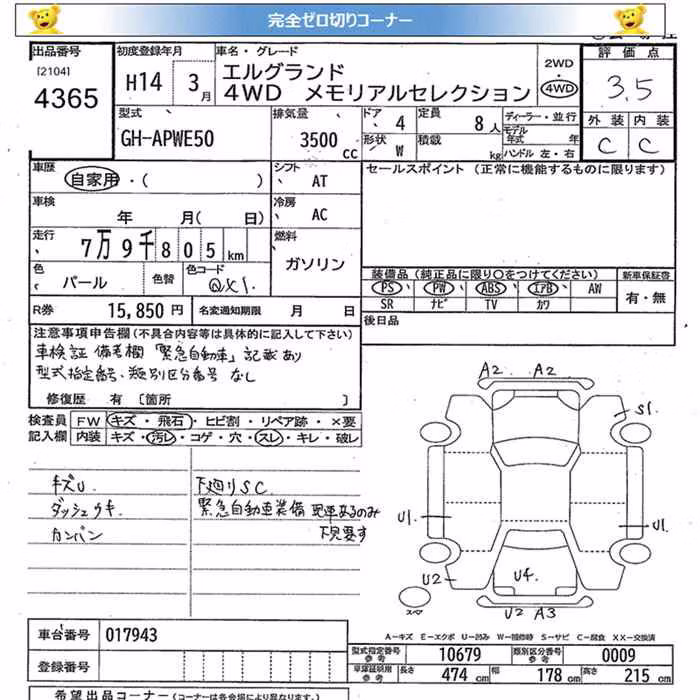 完全ゼロ切りコーナー
出品番号 初度登録年月 車名・グレード 評価点
[2104] エルグランド 2WD
4365 H14 3月 4WD メモリアルセレクション 4WD 3.5
型式 排気量 ドア 4 定員 8人 ディーラー・並行 外装 内装
GH-APWE50 3500cc 形状 W 積載 kg モデル年式 年 C C
ハンドル 左・右
車歴 自家用・( ) シフト AT セールスポイント (正常に機能するものに限ります)
車検 年 月( 日) 冷房 AC
走行 7万9千805km 燃料 ガソリン
色 パール 色替 色コード QX1. 装備品 (純正品に限り○をつけてください) 新車保証書
PS PW ABS エアB AW 有・無
SR ナビ TV カワ
R券 15,850円 名変通知期限 月 日 後日品
注意事項申告欄 (不具合内容等は具体的に記入して下さい)
車検証 備考欄「緊急自動車」記載あり
型式指定番号、類別区分番号 なし
修復歴 有 〔箇所 〕
検査員 FW キズ・飛石・ヒビ割・リペア跡・×要
記入欄 内装 キズ・汚レ・コゲ・穴・スレ・キレ・破レ
A2 A2
S1
キズU 下廻りSC
ダッシュウキ 緊急自動車装備 現車あるのみ
カンバン 下見要す
U1 U1
U2 U4
スペア U2 A3
A-キズ E-エクボ U-凹み W-補修跡 S-サビ C-腐食 XX-交換済
車台番号 017943
登録番号
型式指定番号 参考 10679 類別区分番号 参考 0009
車庫証明用 参考 長さ 474cm 幅 178cm 高さ 215cm
希望出品コーナー (コーナーは各会場により異なります。)